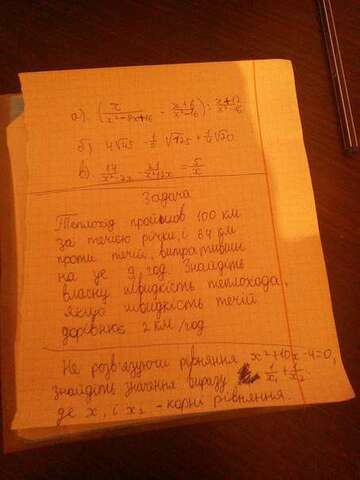 а). (x/x²-8x+16 - x+6/x²-16) : x+12/x²-16
б) 4√45 1/5 √125 + 1/4 √20
в). 14/x²-2x - 21/x²+2x = 5/x
Задача
Теплохід пройшов 100 км
за течією річки, і 84 км
проти течії, витративши
на це 9 год. Знайдіть
власну швидкість теплохода,
якщо швидкість течії
дорівнює 2 км/год
Не розв'язуючи рівняння x²+10x-4=0,
знайдіть значення виразу 1/x₁ + 1/x₂
де x₁ і x₂ - корні рівняння.